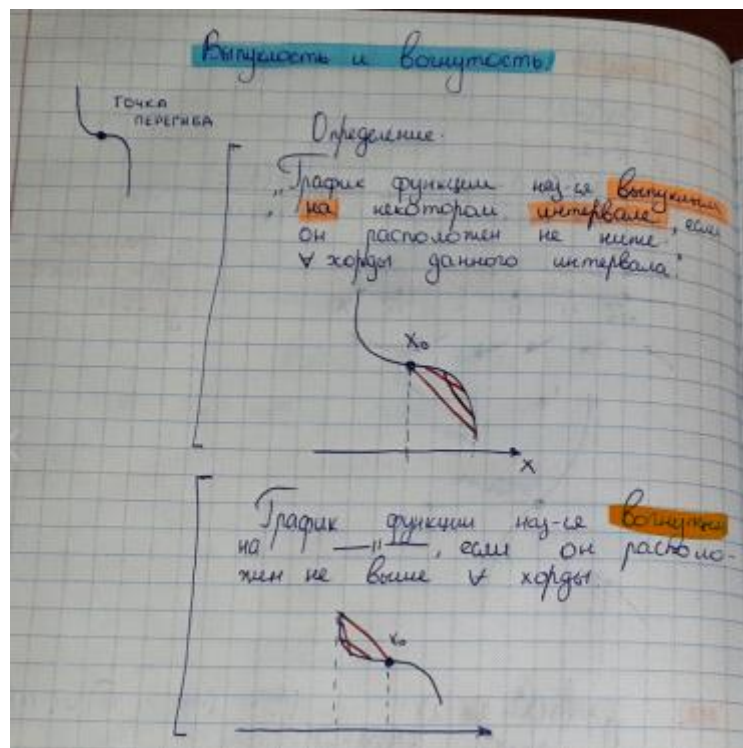 Выпуклость и вогнутость.
ТОЧКА
ПЕРЕГИБА
Определение.
„График функции наз-ся выпуклым
на некотором интервале, если
он расположен не ниже
∀ хорды данного интервала."
X₀
X
График функции наз-ся вогнутым
на —"—, если он располо-
жен не выше ∀ хорды.
X₀